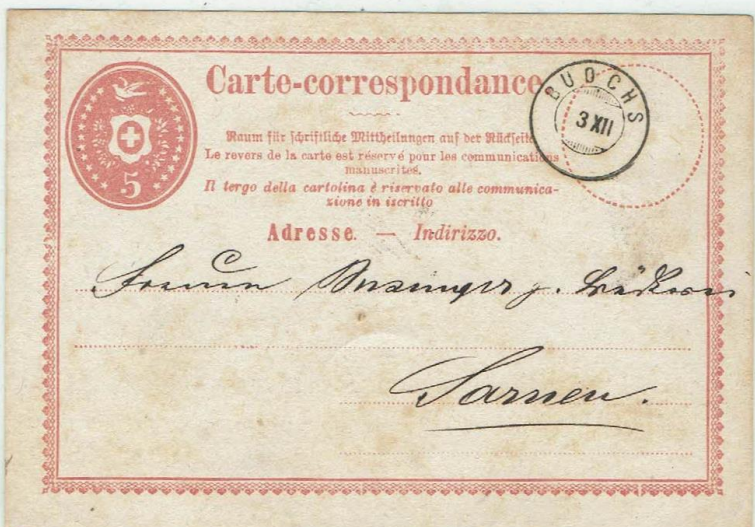 Carte-correspondance
BUOCHS
3 XII
Raum für schriftliche Mittheilungen auf der Rückseite
Le revers de la carte est réservé pour les communications
manuscrites.
Il tergo della cartolina è riservato alle communica-
zione in iscritto
5
Adresse. — Indirizzo.
Frauen z.
Sarnen.